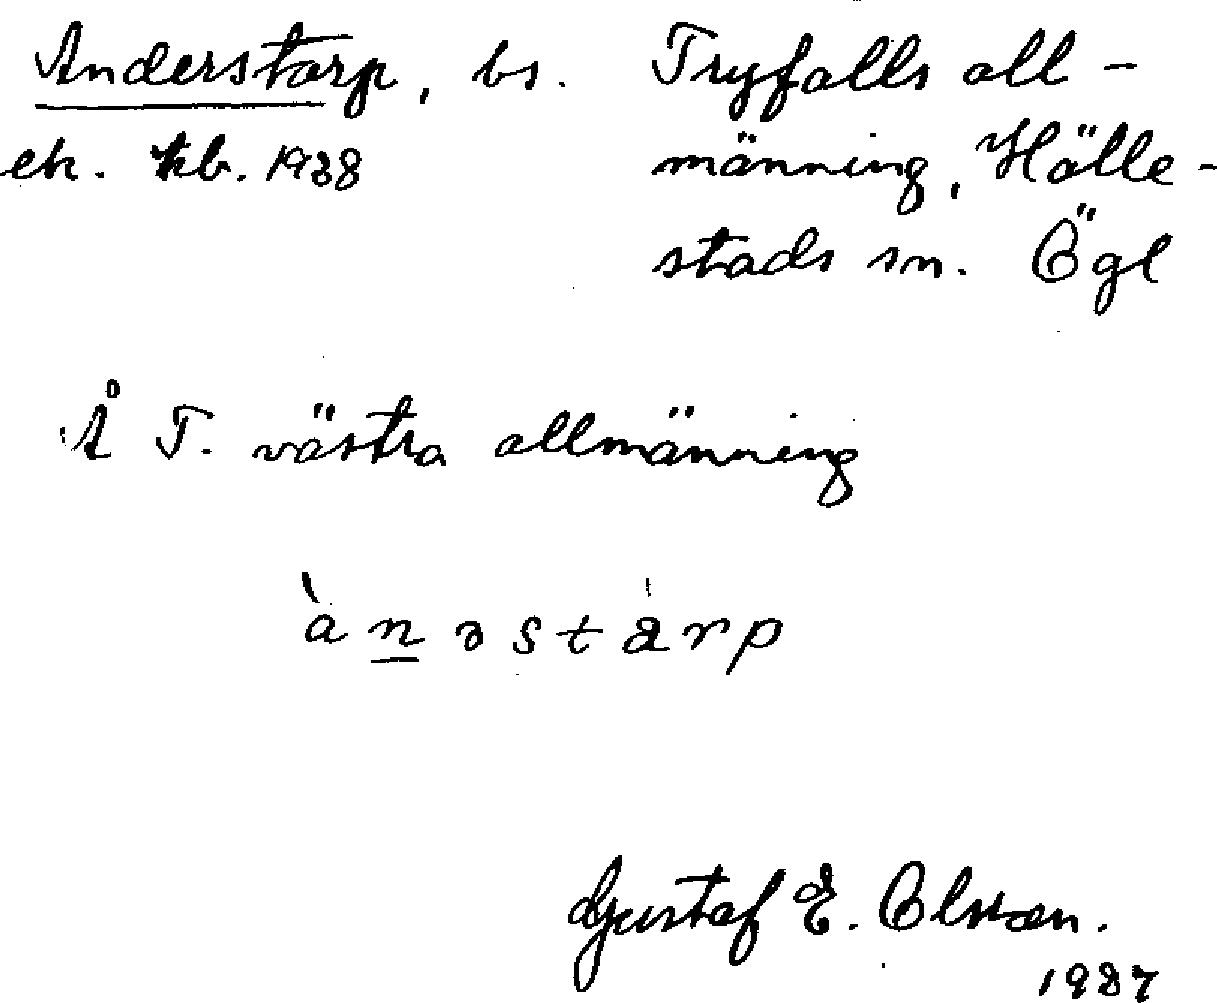 Anderstorp, bs. Tryfalls all-
ek. kb. 1938 männing, Hälle-
stads sn. Ögl
Å T. västra allmänning
ànəstàrp
Gustaf E. Olsson.
1937